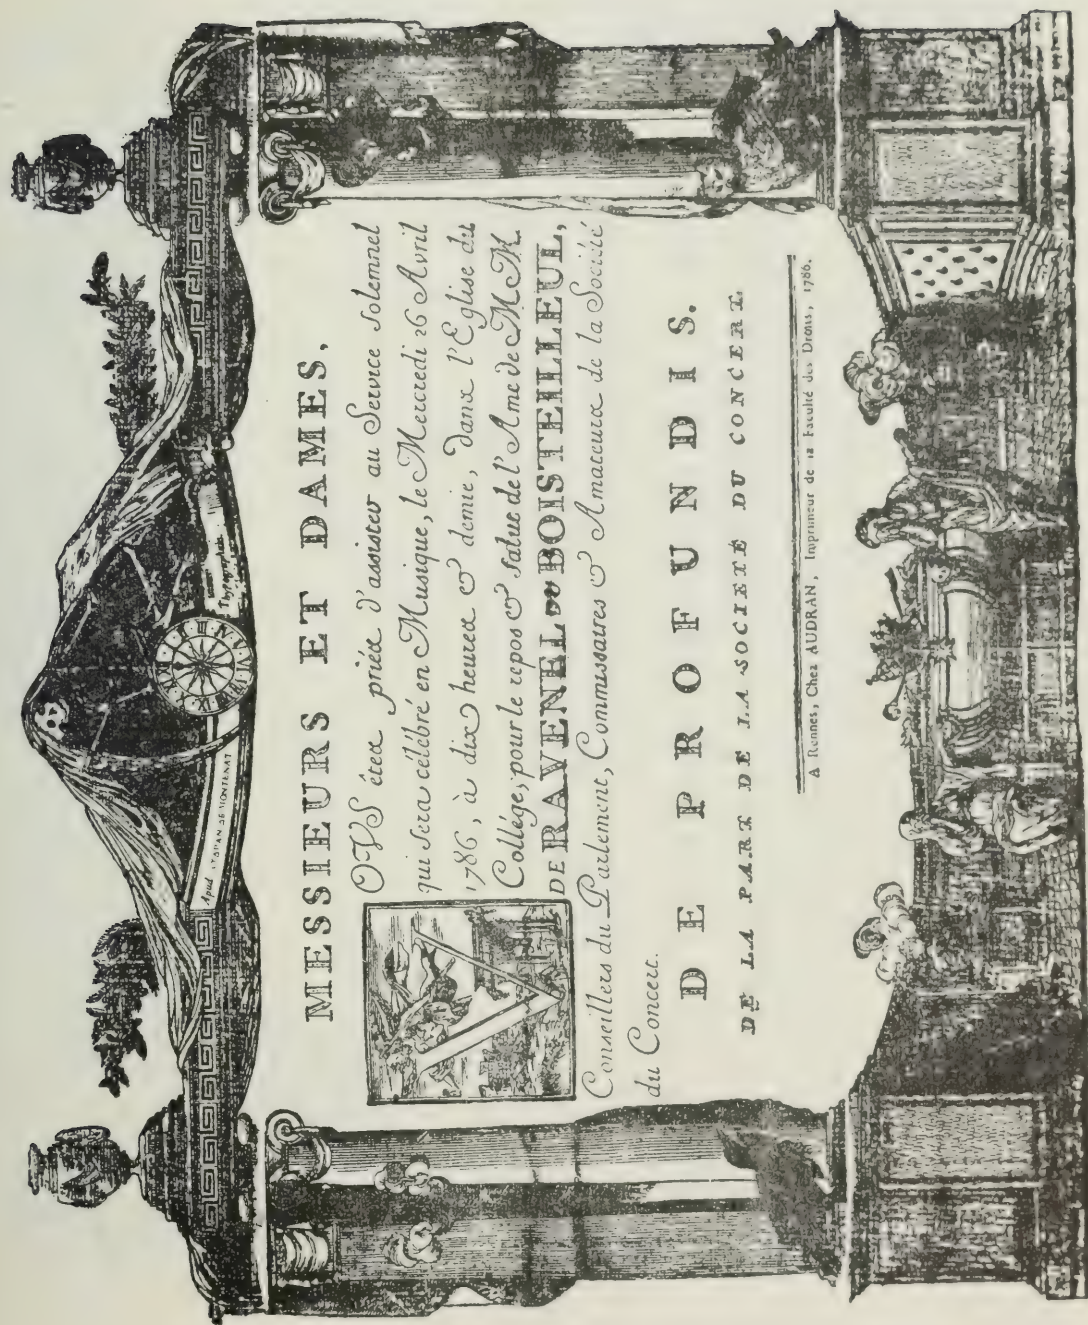 Apud
MESSIEURS ET DAMES,
VOUS êtes priés d'assister au Service Solemnel
qui sera célébré en Musique, le Mercredi 26 Avril
1786, à dix heures & demie, dans l'Eglise du
Collége, pour le repos & salut de l'Ame de M. M.
DE RAVENEL DU BOISTEILLEUL,
Conseillers du Parlement, Commissaires & Amateurs de la Société
du Concert.
DE PROFUNDIS.
DE LA PART DE LA SOCIETÉ DU CONCERT
A Rennes, Chez AUDRAN, Imprimeur de la Faculté des Droits, 1786.